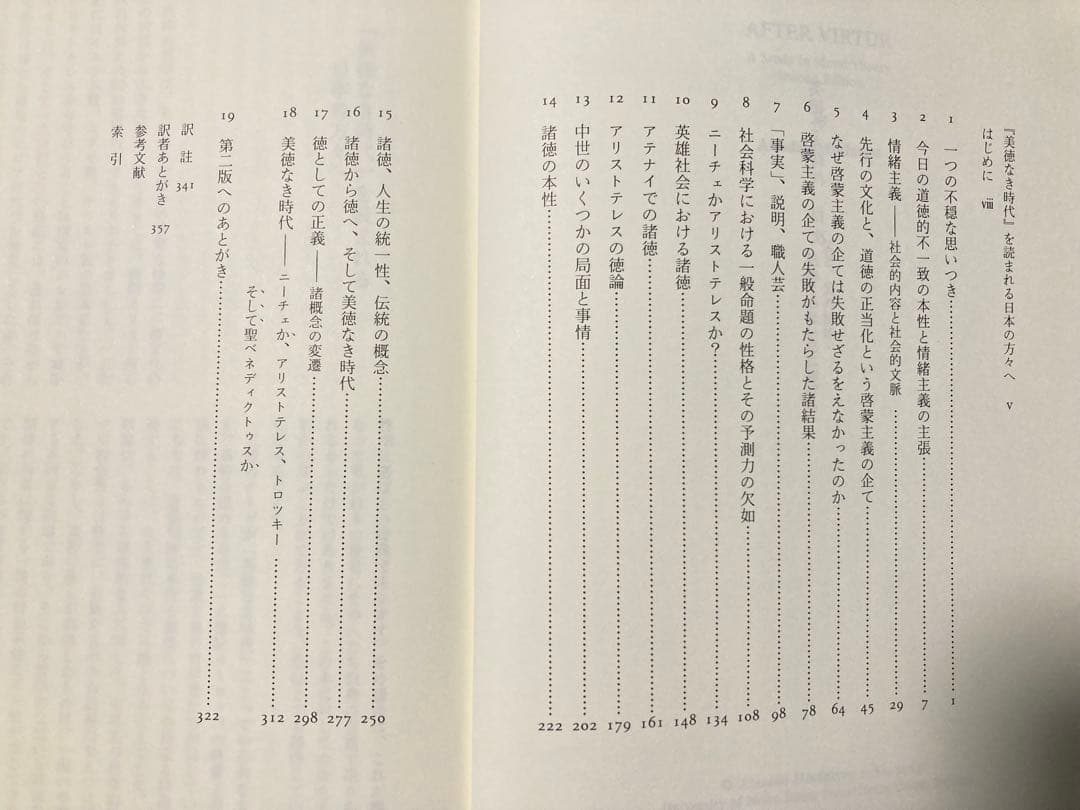 『美徳なき時代』を読まれる日本の方々へ v
はじめに viii
1 一つの不穏な思いつき……1
2 今日の道徳的不一致の本性と情緒主義の主張……7
3 情緒主義――社会的内容と社会的文脈……29
4 先行の文化と、道徳の正当化という啓蒙主義の企て……45
5 なぜ啓蒙主義の企ては失敗せざるをえなかったのか……64
6 啓蒙主義の企ての失敗がもたらした諸結果……78
7 「事実」、説明、職人芸……98
8 社会科学における一般命題の性格とその予測力の欠如……108
9 ニーチェかアリストテレスか？……134
10 英雄社会における諸徳……148
11 アテナイでの諸徳……161
12 アリストテレスの徳論……179
13 中世のいくつかの局面と事情……202
14 諸徳の本性……222
15 諸徳、人生の統一性、伝統の概念……250
16 諸徳から徳へ、そして美徳なき時代……277
17 徳としての正義――諸概念の変遷……298
18 美徳なき時代――ニーチェか、アリストテレス、トロツキー……312
そして聖ベネディクトゥスか、
19 第二版へのあとがき……322
訳註 341
訳者あとがき 357
参考文献
索引
AFTER VIRTUE